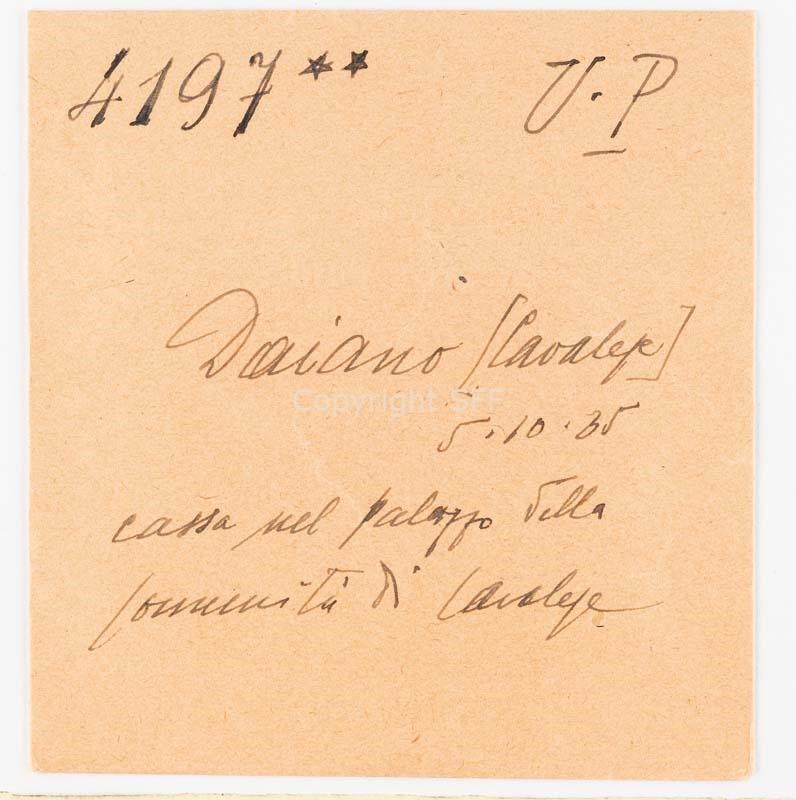 4197** U.P
Daiano [Cavalese]
Copyright SFF
5.10.35
cassa nel palazzo della
Comunità di Cavalese